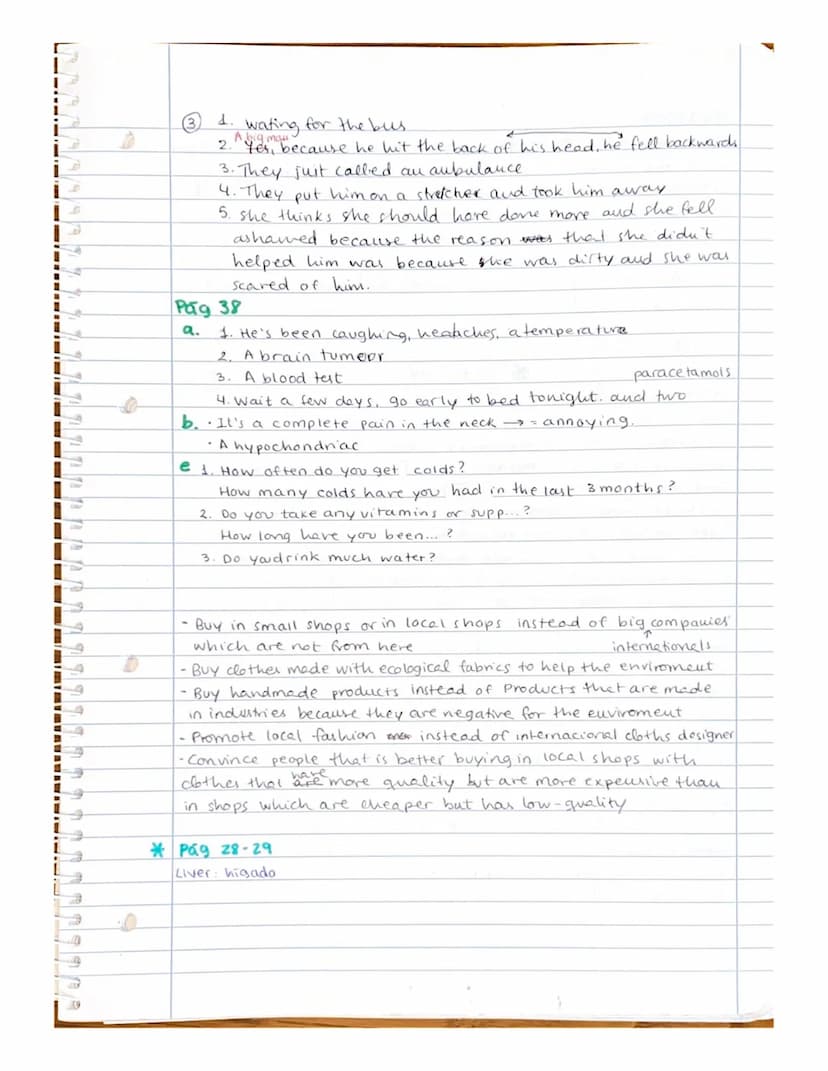 ③ 1. wating for the bus
A big man
2. Yes, because he hit the back of his head, he fell backwards
3. They just called an aubulance
4. They put him on a stretcher and took him away
5. she thinks she should have done more and she fell
ashamed because the reason was that she didn't
helped him was because she was dirty and she was
scared of him.
Pág 38
a. 1. He's been caughing, headches, a temperature
2. A brain tumeor
3. A blood test
paracetamols
4. Wait a few days, go early to bed tonight. and two
b. · It's a complete pain in the neck → = annoying.
· A hypochondriac
e 1. How often do you get colds?
How many colds have you had in the last 3 months?
2. Do you take any vitamins or supp...?
How long have you been... ?
3. Do you drink much water?
- Buy in small shops or in local shops instead of big companies
which are not from here
internetionals
- Buy clothes made with ecological fabrics to help the enviroment
- Buy handmade products instead of Products that are made
in industries because they are negative for the euviroment
- Promote local fashion instead of internacional cloths designer
- Convince people that is better buying in local shops with
have
clothes that are more quality but are more expensive than
in shops which are cheaper but has low-quality
* Pág 28-29
Liver: hígado